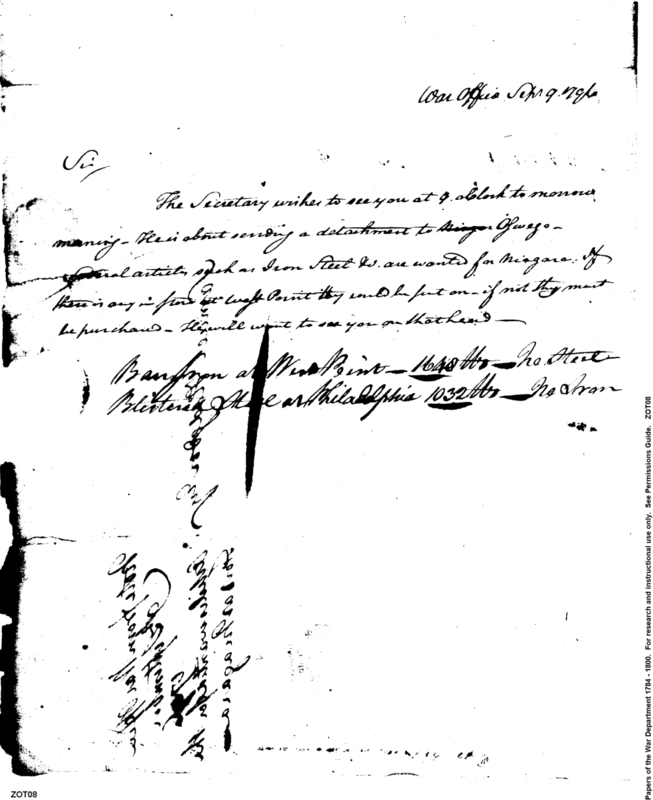 War Office Sepr. 9. 1796
Sir,
The Secretary wishes to see you at 9. oClock to morrow
morning - He is about sending a detachment to Niagar Oswego -
several articles such as Iron Steel &c. are wanted for Niagara. If
there is any in store at West Point they could be put on - if not they must
be purchased - He will want to see you on that head -
Barr Iron at West Point - 1648 lbs - No Steel
Blistered Steel at Philadelphia 1032 lbs - No Iron
Papers of the War Department 1784 - 1800. For research and instructional use only. See Permissions Guide. ZOT08
ZOT08